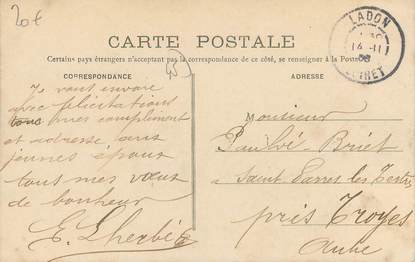 20€
CARTE POSTALE
Certains pays étrangers n'acceptant pas la correspondance de ce côté, se renseigner à la Poste
CORRESPONDANCE
ADRESSE
LADON
14 - 11
08
LOIRET
Je vous envoie
avec félicitations
mes compliment
et adresse aux
jeunes époux
tous mes vœux
de bonheur
E. Lherbié
Monsieur
Briet
à Saint Parres les Tertre
près Troyes
Aube